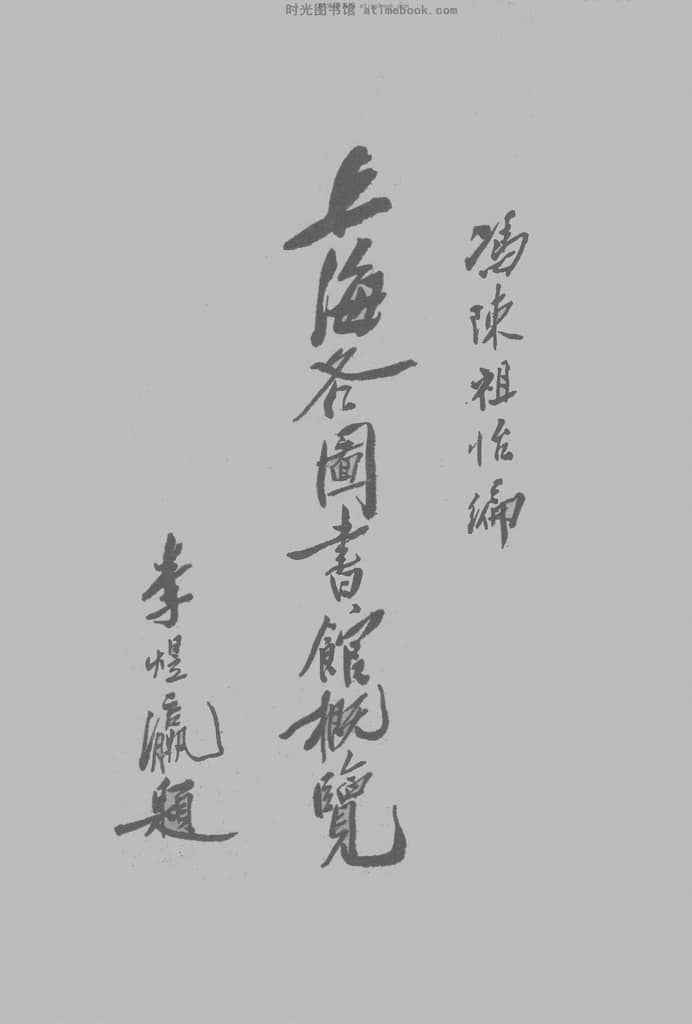 时光图书馆 atimebook.com
馮陳祖怡編
上海各圖書館概覽
李煜瀛題